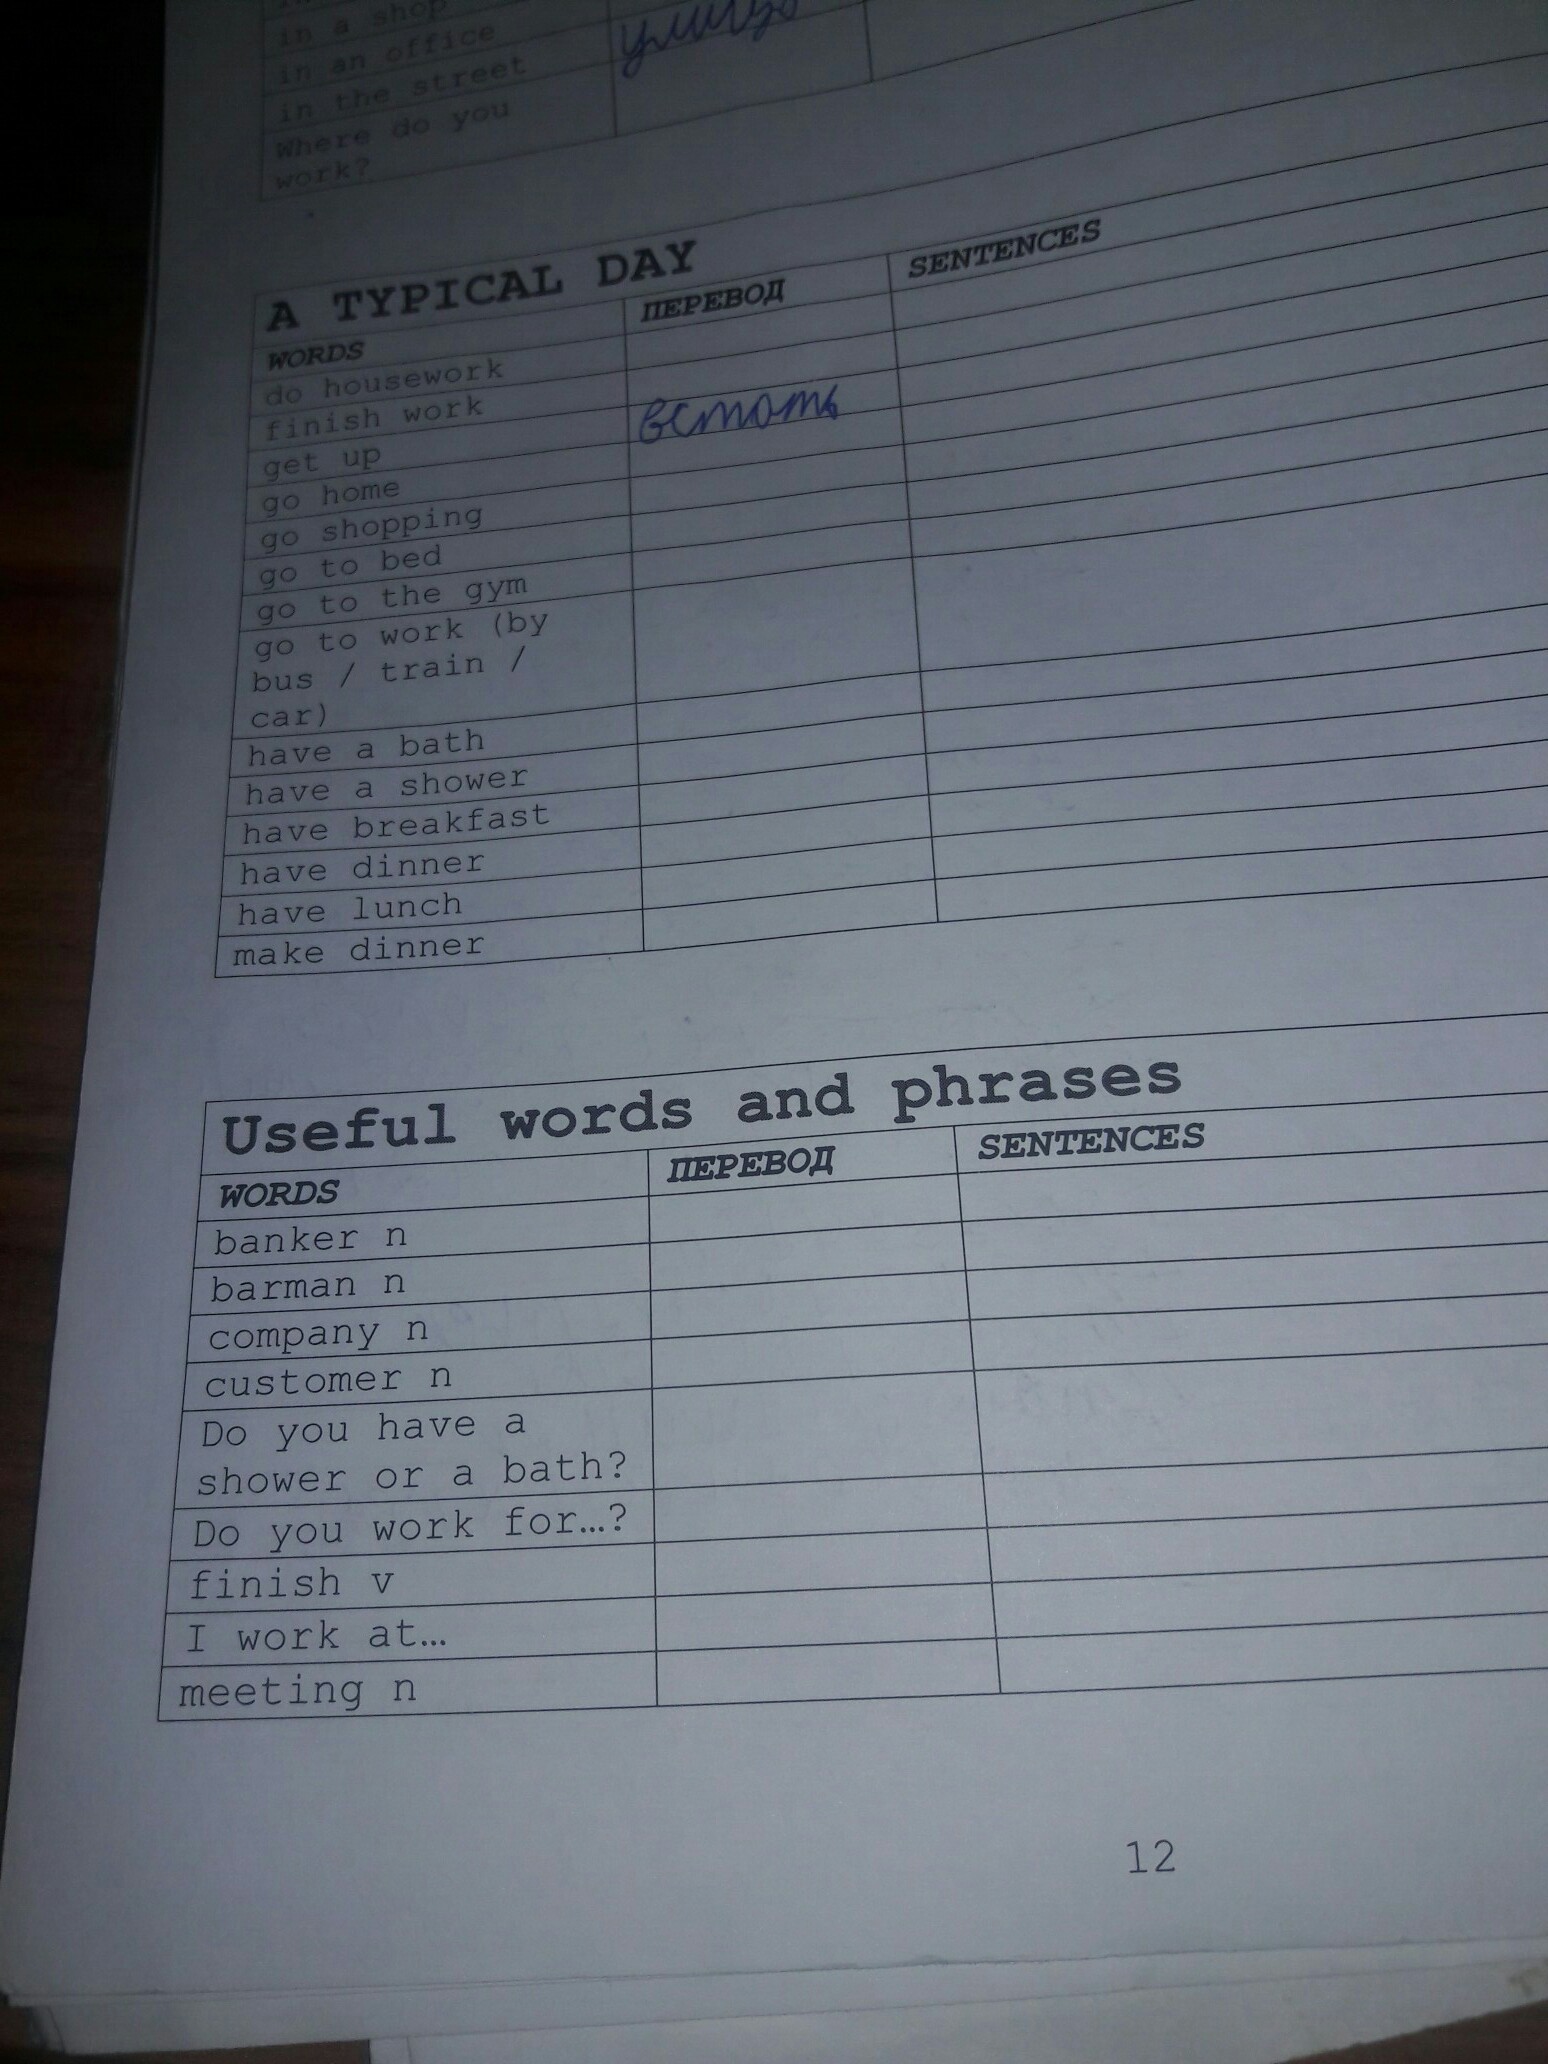 in a shop
in an office
in the street
улица
Where do you
work?
A TYPICAL DAY
WORDS ПЕРЕВОД SENTENCES
do housework
finish work
get up встать
go home
go shopping
go to bed
go to the gym
go to work (by
bus / train /
car)
have a bath
have a shower
have breakfast
have dinner
have lunch
make dinner
Useful words and phrases
WORDS ПЕРЕВОД SENTENCES
banker n
barman n
company n
customer n
Do you have a
shower or a bath?
Do you work for…?
finish v
I work at…
meeting n
12